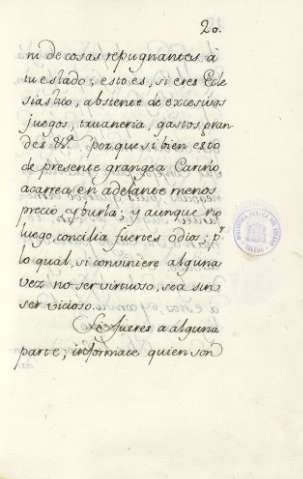 20.
ni de cosas repugnantes à
tu estado; esto es, si eres Ecle
siastico, abstente de excesivos
juegos, truaneria, gastos gran
des &c. porque si bien esto
de presente grangea Cariño
acarrea en adelante menos
precio, y burla; y aunque no
luego, concilia fuertes odios; pr
lo qual, si conviniere alguna
vez no ser virtuoso, sea sin
ser vicioso.
Si fueres a alguna
parte, informate quien son